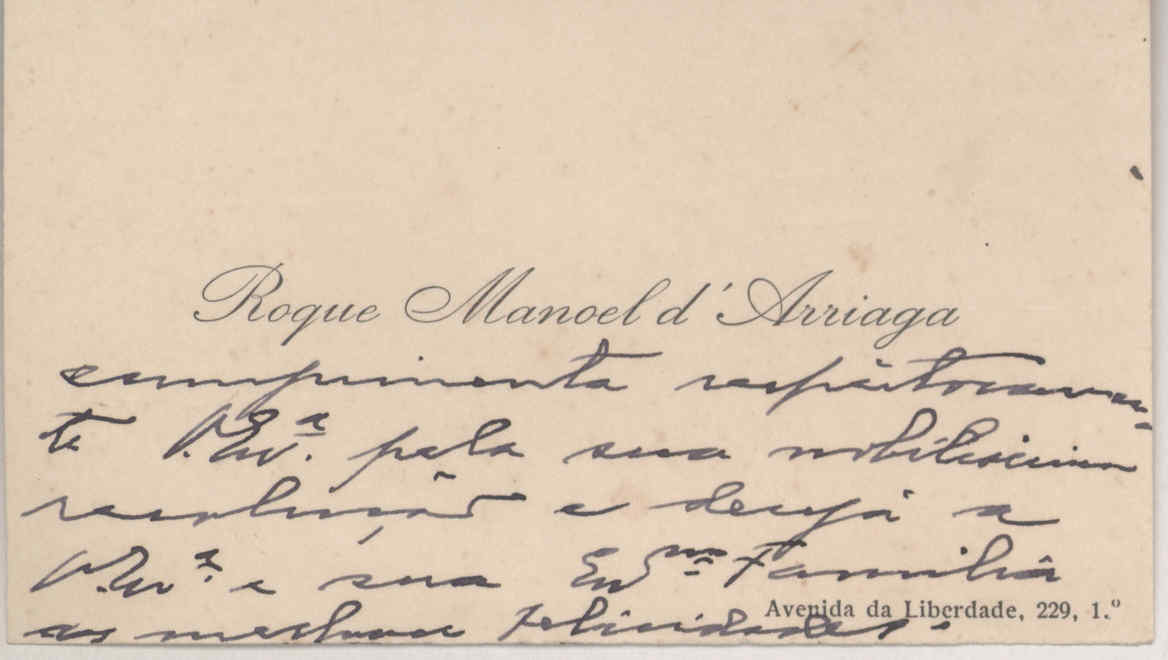 Roque Manoel d'Arriaga
cumprimenta respeitosamen-
te V. Ex.ª pela sua nobilissima
resolução e deseja a
V. Ex.ª e sua Exmª Familia
Avenida da Liberdade, 229, 1.º
as melhores felicidades.